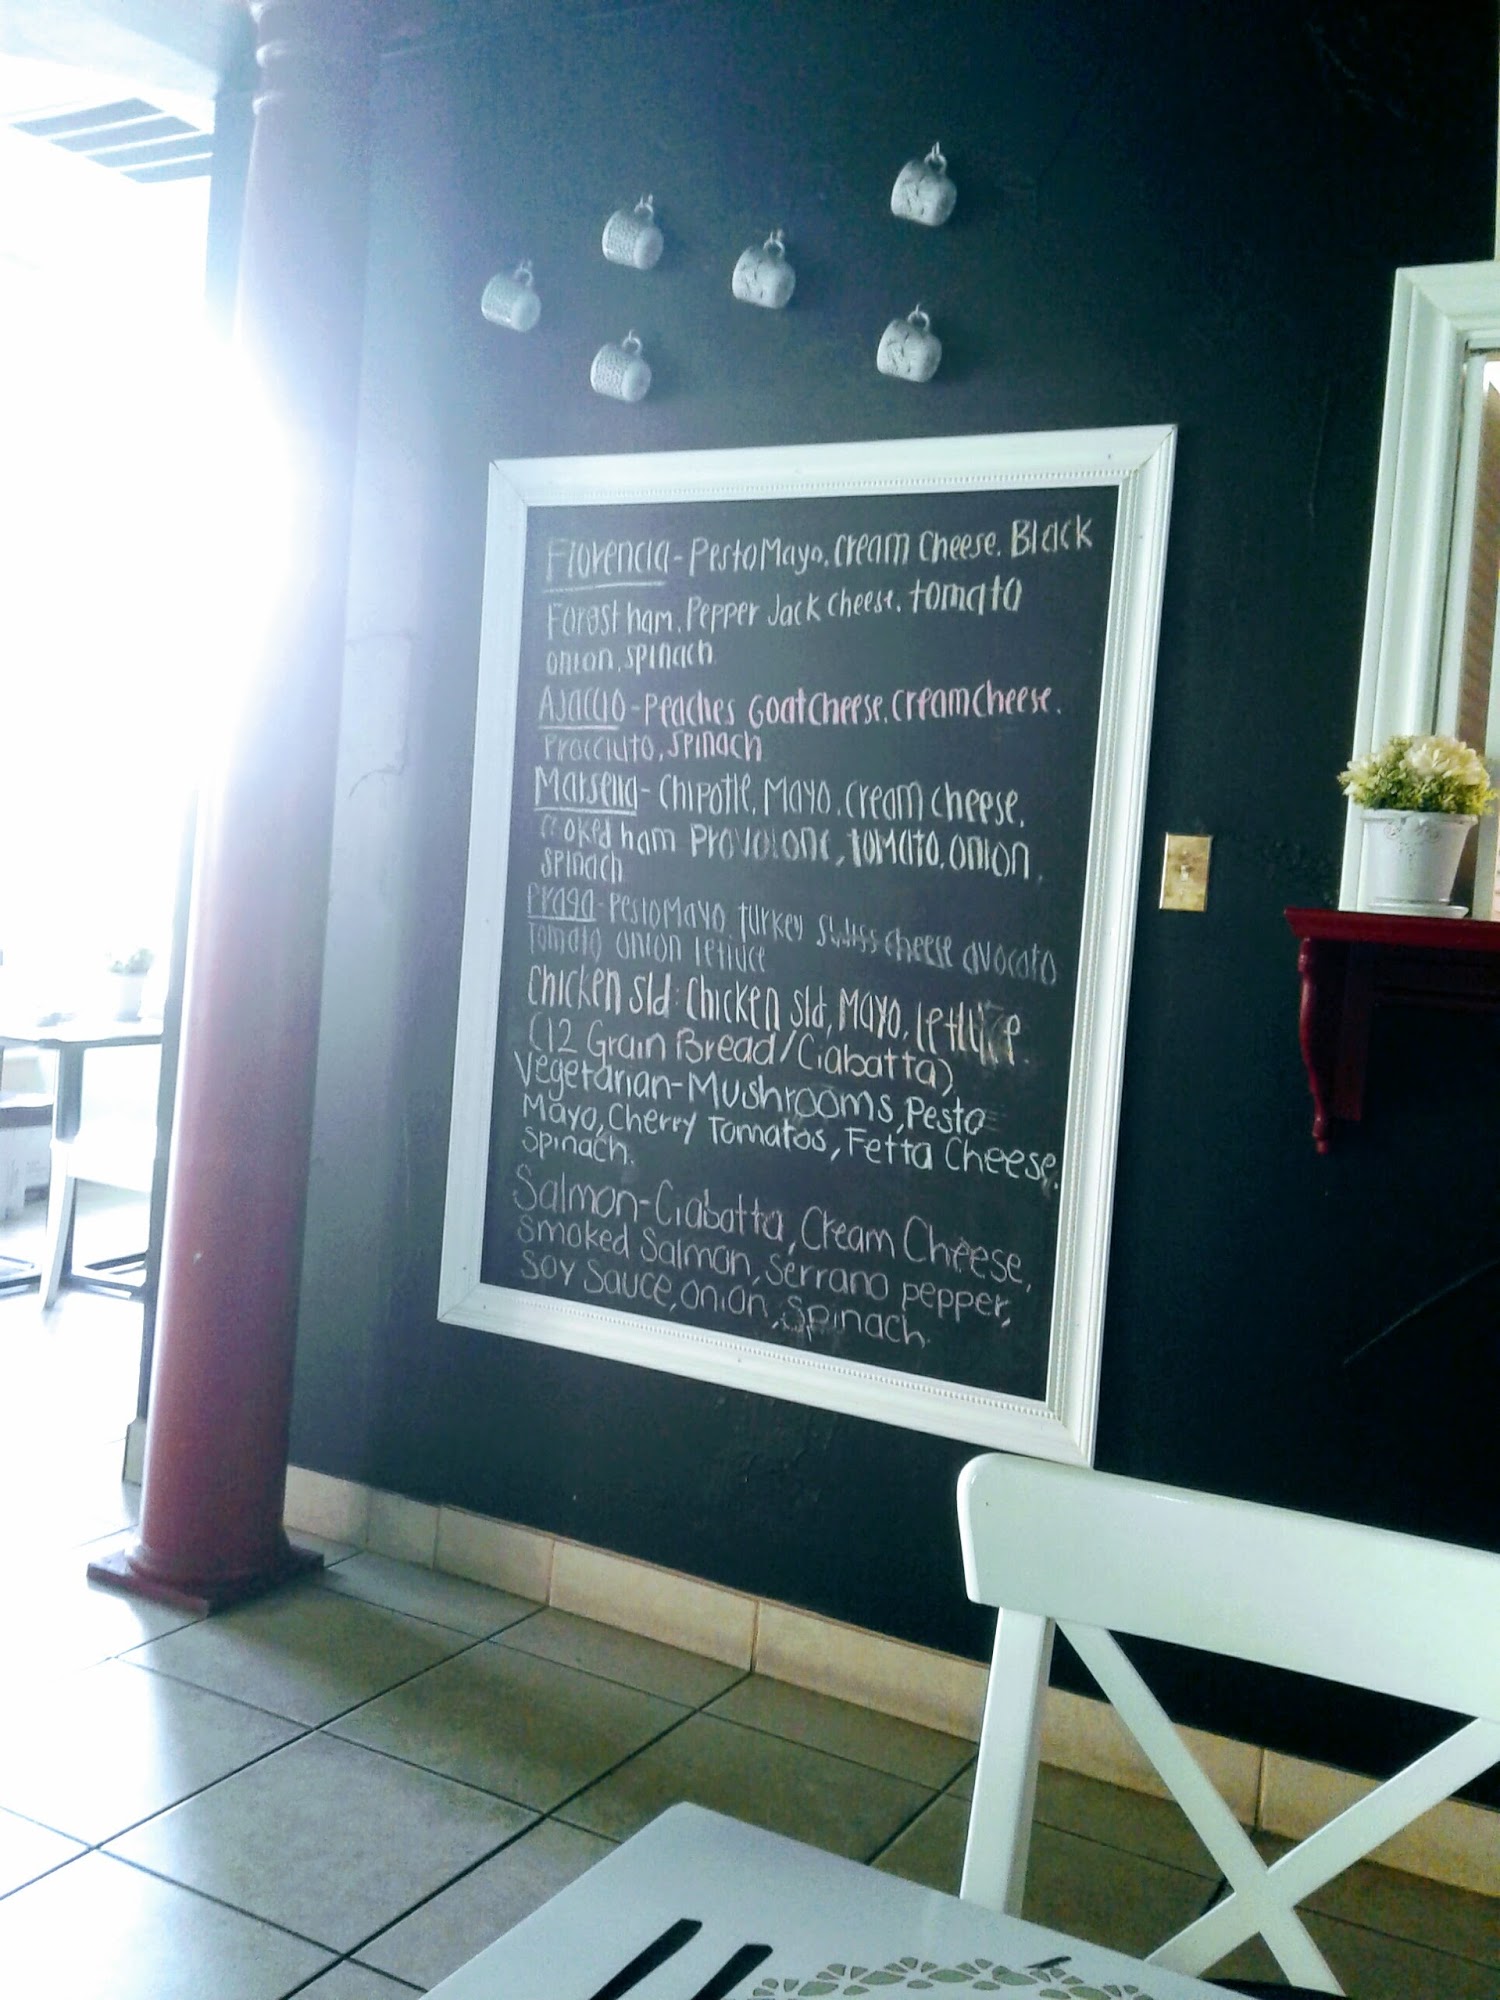 Florencia - Pesto Mayo, Cream Cheese. Black
Forest ham, Pepper Jack cheese, tomato
onion, spinach
Ajaccio - Peaches Goat Cheese, Cream Cheese.
Procciuto, Spinach
Marsella - Chipotle, Mayo, cream cheese,
smoked ham Provolone, tomato, onion,
spinach
Praga - Pesto Mayo, Turkey Swiss cheese avocato
tomato onion lettuce
Chicken Sld: Chicken sld, Mayo, lettuce.
(12 Grain Bread/Ciabatta)
Vegetarian - Mushrooms, Pesto
Mayo, Cherry Tomatos, Fetta Cheese,
Spinach.
Salmon - Ciabatta, Cream Cheese,
Smoked Salmon, Serrano pepper,
Soy Sauce, onion, Spinach.